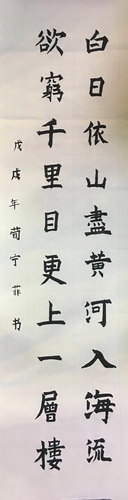 白日依山盡黄河入海流
欲窮千里目更上一層樓
戊戌年荀宁菲书